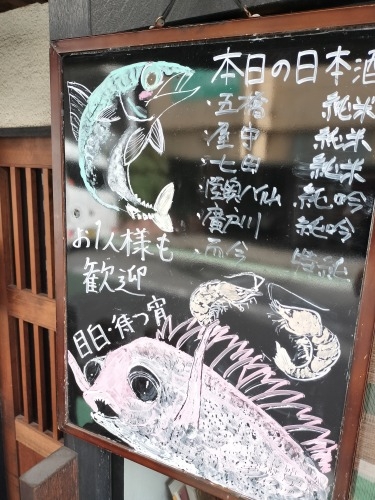 本日の日本酒
・五橋 純米
・屋守 純米
・七田 純米
・陸奥八仙 純吟
・廣戸川 純吟
・而今 特純
お1人様も
歓迎
目白・待つ宵